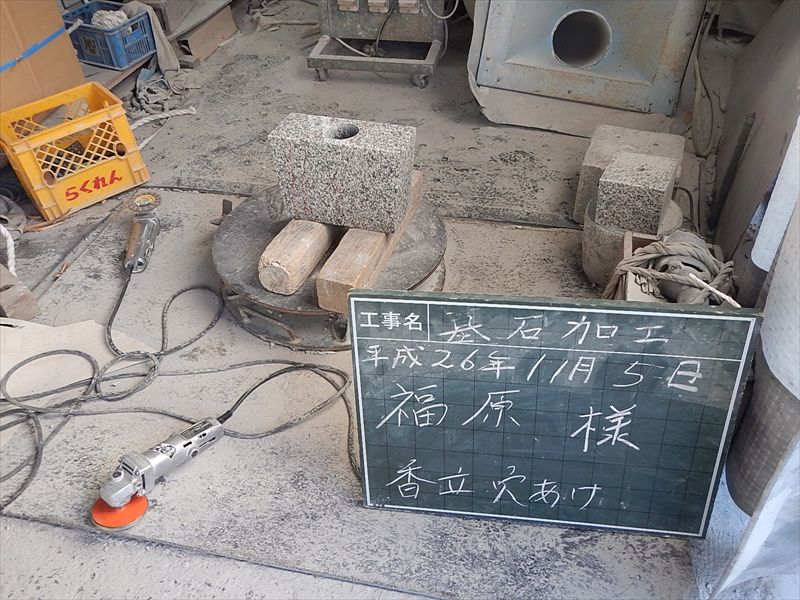 らくれん
工事名 墓石加工
平成26年11月5日
福原 様
香立穴あけ